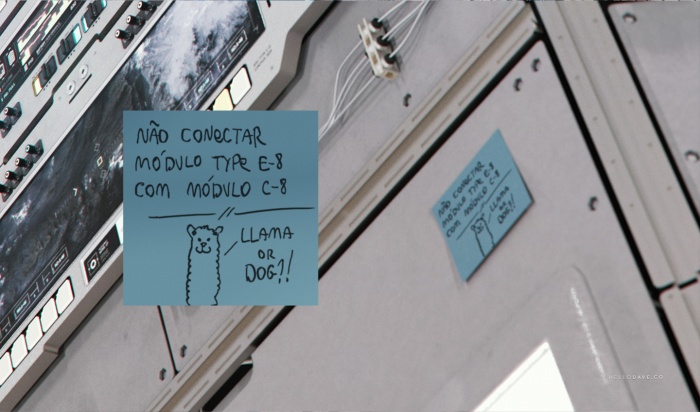 NÃO CONECTAR
MÓDULO TYPE E-8
COM MÓDULO C-8
LLAMA
OR
DOG?!
NÃO CONECTAR
MÓDULO TYPE E-8
COM MÓDULO C-8
LLAMA
OR
DOG?!
HELLODAVE.CO